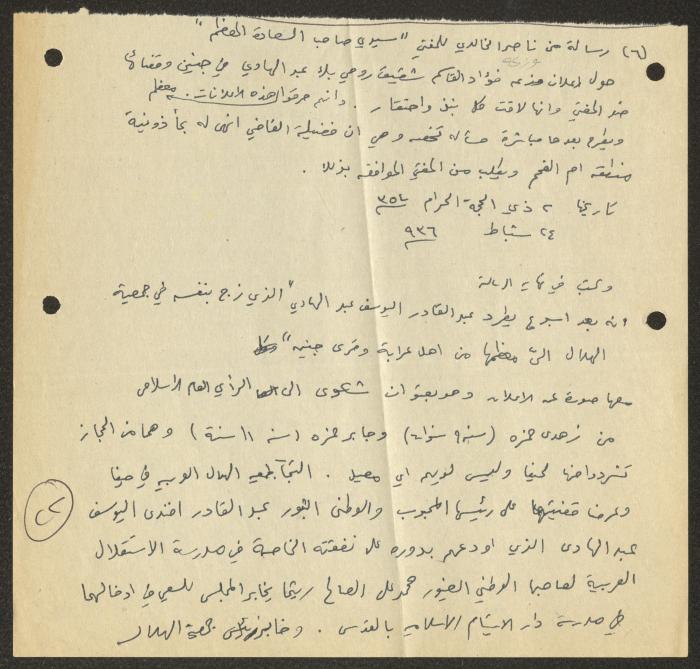 (٦) رسالة من ناصر الخالدي للمفتي "سيدي صاحب السعادة المعظم"
حول اعلان وزعه فؤاد القاسم شقيق روحي بك عبد الهادي في جنين وقضائها
ضد المفتي وانها لاقت كل نبذ واحتقار . وانهم حرقوا هذه الاعلانات . معظم
ويطرح بعدها مباشرة مسألة تخصه وهي ان فضيلة القاضي انهى له بمأذونية
منطقة ام الفحم ويطلب من المفتي الموافقة بذلك .
تاريخها ٢ ذي الحجة الحرام ٣٥٤
٢٤ شباط ٩٣٦
وكتب في نهاية الرسالة
انه بعد اسبوع يطرد عبد القادر اليوسف عبد الهادي "الذي زج بنفسه في جمعية
الهلال التي معظمها من اهل عرابة وقرى جنين"
معها صورة عن الاعلان وهو بعنوان شكوى الى الرأي العام الاسلامي
من زهدي حمزه (سنه ٩ سنوات) وجابر حمزه (سنه ١١ سنة) وهما من الحجاز
تشردا لحيفا وليس لهم اي معيل . التجآ لجمعية الهلال العربي في حيفا
وعرضا قضيتهما على رئيسها المحبوب والوطني الغيور عبد القادر افندي اليوسف
عبد الهادي الذي اودعهم بدوره على نفقته الخاصة في مدرسة الاستقلال
العربية لصاحبها الوطني الغيور محمد علي الصالح ريثما يخابر المجلس للسعي في ادخالهما
في مدرسة دار الايتام الاسلامية بالقدس . وخابر رئيس جمعية الهلال
(٢)